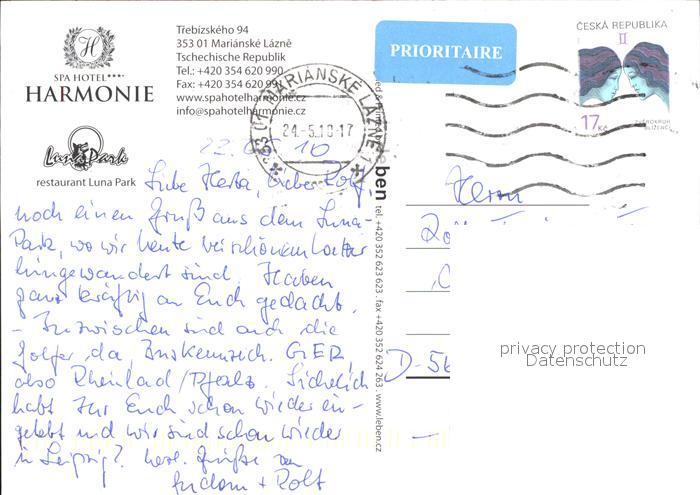 SPA HOTEL****
HARMONIE
Třebízského 94
353 01 Mariánské Lázně
Tschechische Republik
Tel.: +420 354 620 990
Fax: +420 354 620 991
www.spahotelharmonie.cz
info@spahotelharmonie.cz
Luna Park
restaurant Luna Park
PRIORITAIRE
ČESKÁ REPUBLIKA
II
17 Kč
ZVĚROKRUH
BLÍŽENCI
353 01 MARIÁNSKÉ LÁZNĚ 1
24.-5.10-17
22.05.10
Liebe Herta, lieber Rolf,
noch einen Gruß aus dem Luna-
Park, wo wir heute bei schönem Wetter
hingewandert sind. Haben
ganz kräftig an Euch gedacht.
- Inzwischen sind auch die
Golfer da, Buskennzeich. GER,
also Rheinland/Pfalz. Sicherlich
habt Ihr Euch schon wieder ein-
gelebt und wir sind schon wieder
in Leipzig? Herzl. Grüße von
+ Rolf
ben
tel. +420 352 623 623 . fax +420 352 624 263 . www.leben.cz
Herrn
D-56
privacy protection
Datenschutz